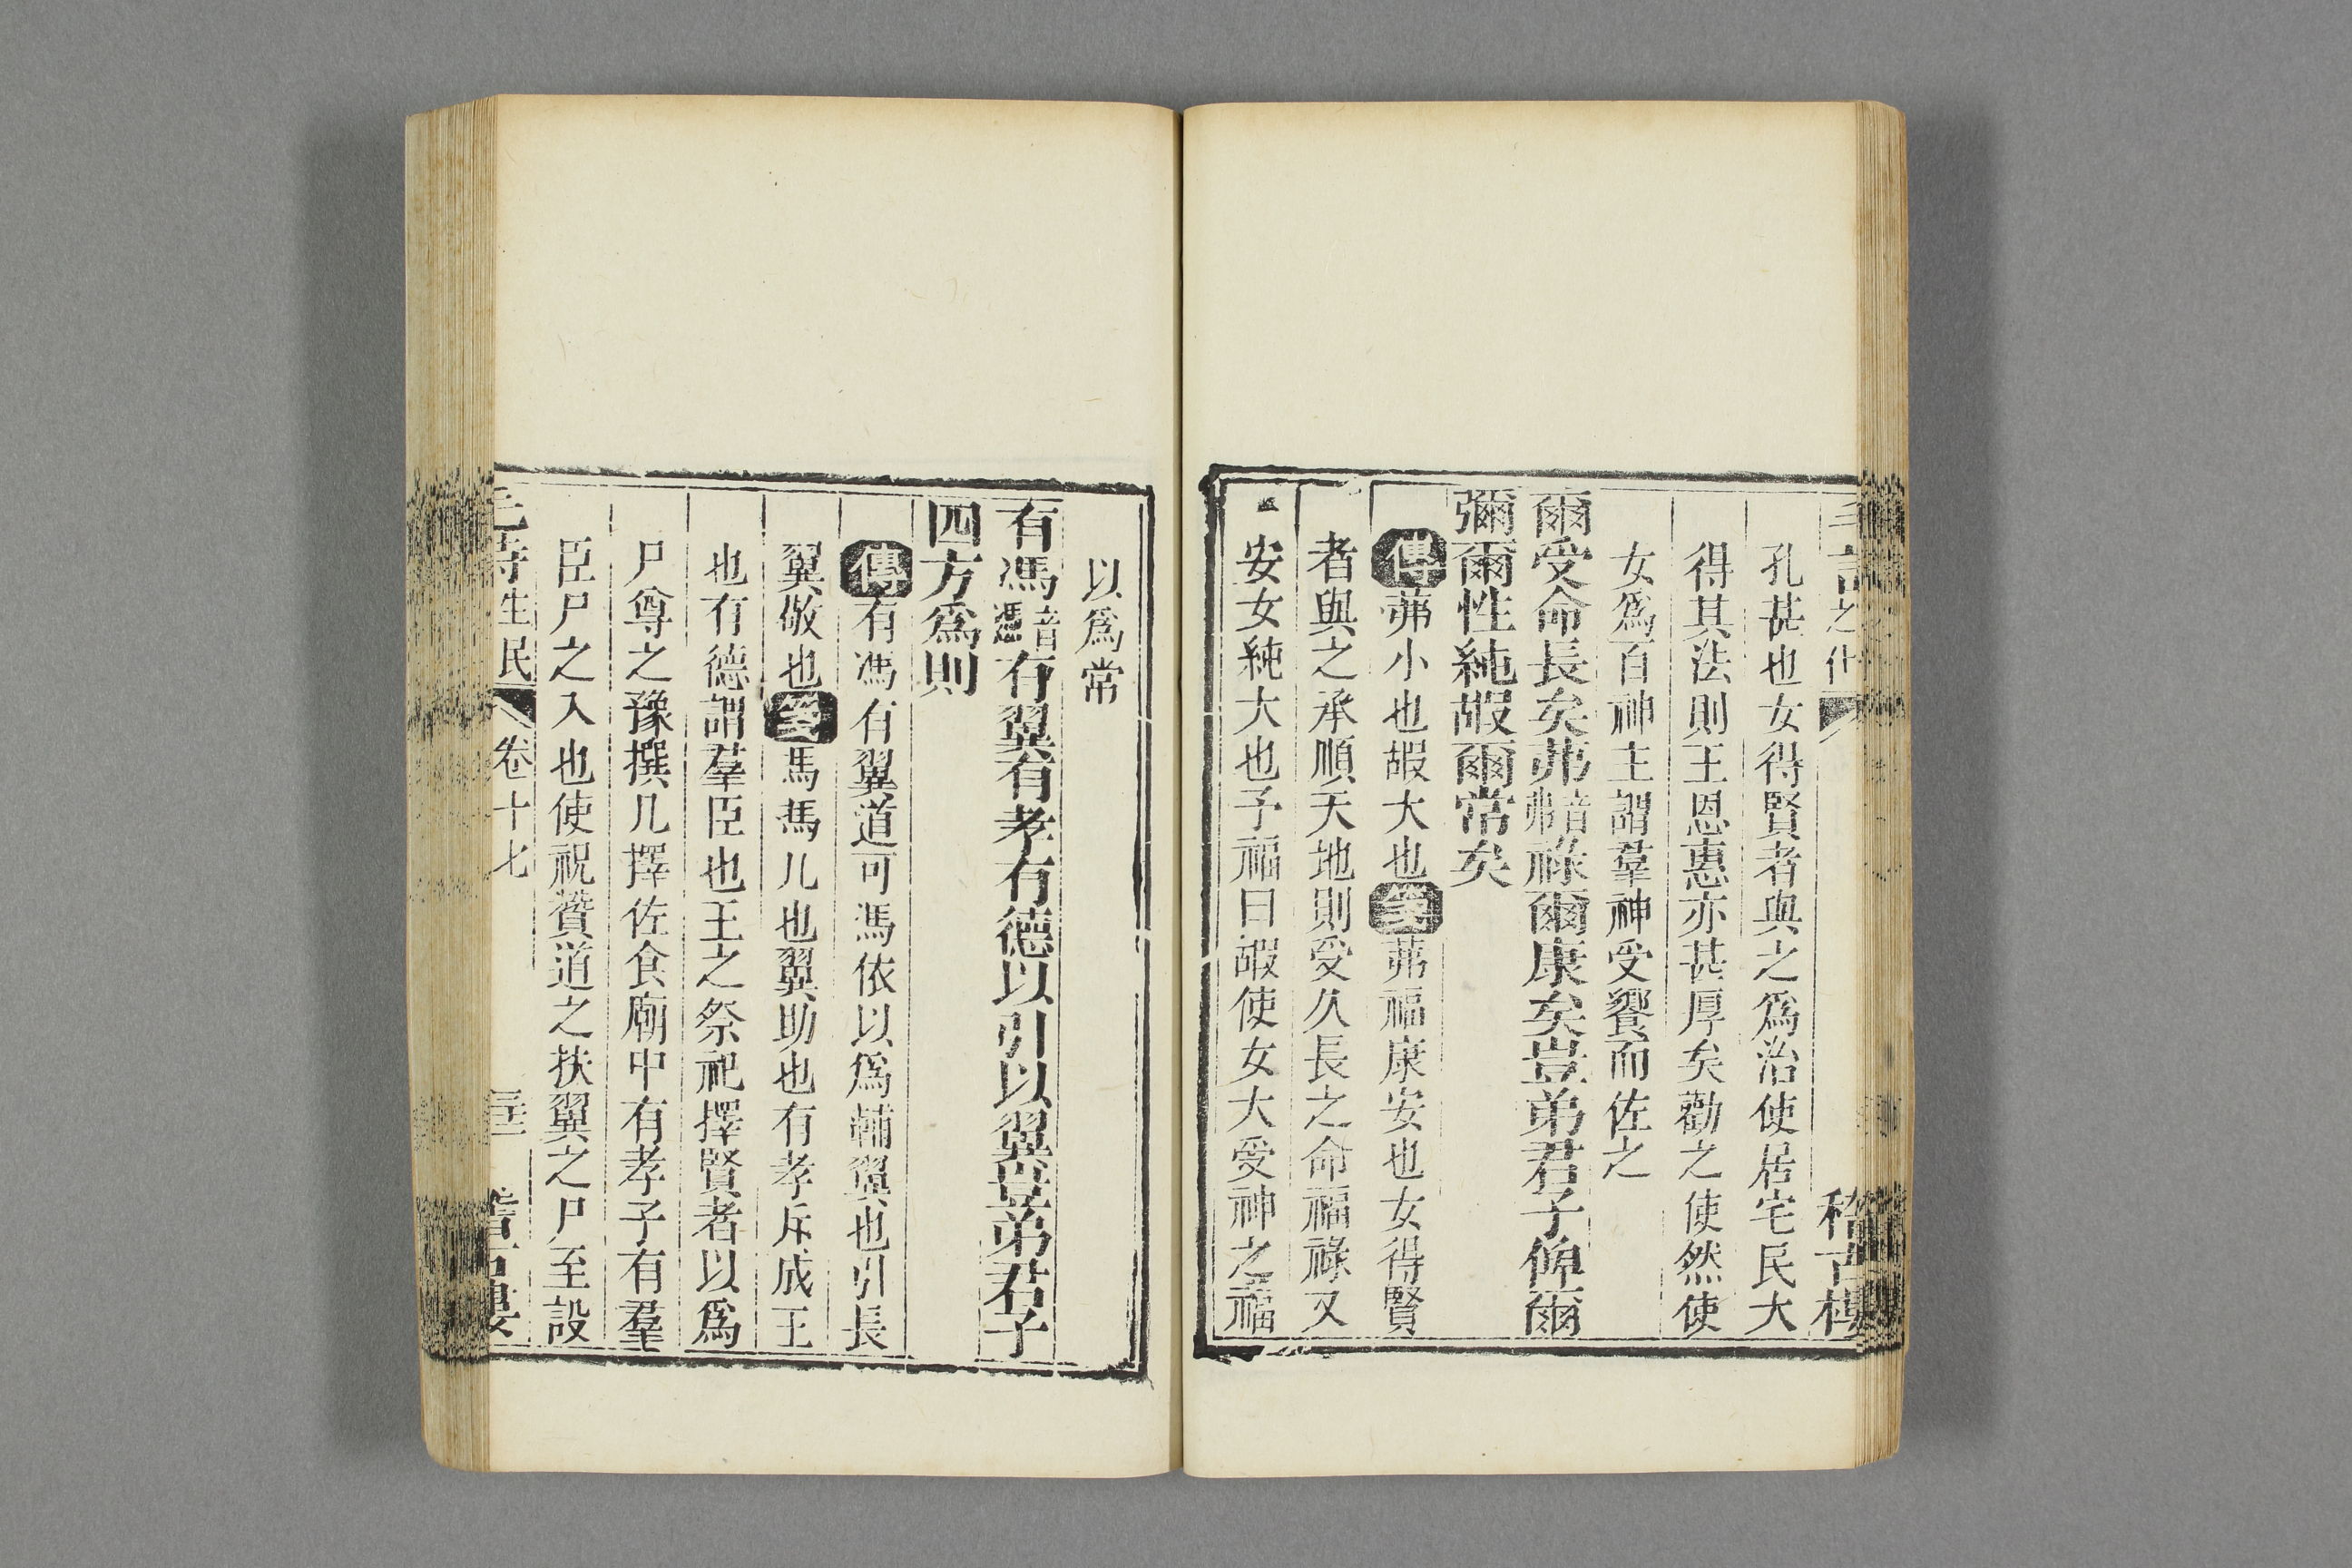 孔甚也女得賢者與之爲治使居宅民大
得其法則王恩惠亦甚厚矣勸之使然使
女爲百神主謂羣神受饗而佐之
爾受命長矣茀音弗祿爾康矣豈弟君子俾爾
彌爾性純嘏爾常矣
傳茀小也嘏大也箋茀福康安也女得賢
者與之承順天地則受久長之命福祿又
安女純大也予福曰嘏使女大受神之福
以爲常
有馮音憑有翼有孝有德以引以翼豈弟君子
四方爲則
傳有馮有翼道可馮依以爲輔翼也引長
翼敬也箋馮馮几也翼助也有孝斥成王
也有德謂羣臣也王之祭祀擇賢者以爲
尸尊之豫撰几擇佐食廟中有孝子有羣
臣尸之入也使祝贊道之扶翼之尸至設
毛詩生民 卷十七